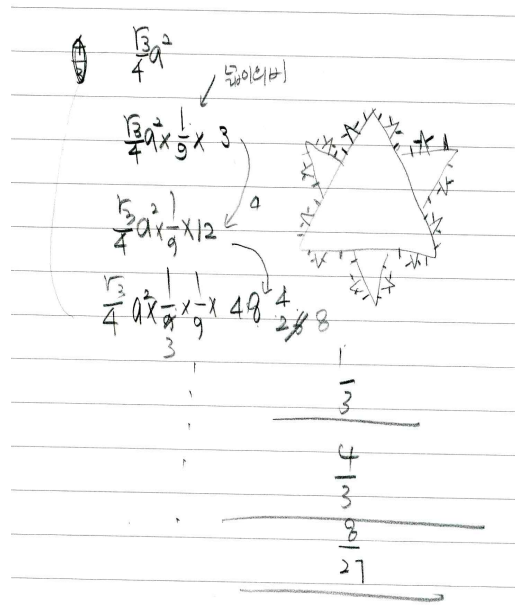 √3/4 a²
넓이의 비
√3/4 a² × 1/9 × 3
4
√3/4 a² × 1/9 × 12
√3/4 a² × 1/9 × 1/9 × 48 4
3
8
1/3
4/3
8/27